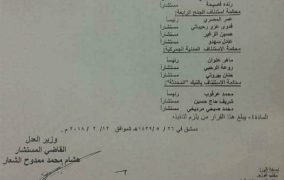 رنده قصيجة مستشارا
محكمة استئناف الجنح الرابعة:
عمر المصري رئيسا
فدوى عزو رحيباني مستشارا
حسين الزغير مستشارا
عادل سهدو مستشارا
محكمة الاستئناف المدنية الجمركية:
ماهر علوان رئيسا
روعة الرحبي مستشارا
حنان بيروتي مستشارا
محكمة الاستئناف بالتبك "المحدثة"
محمد عرقوب رئيسا
شريف حاج حسين مستشارا
محمد صبحي مرديخي مستشارا
المادة٤- يبلغ هذا القرار من يلزم لتنفيذه
دمشق في ٢٦/٥/١٤٣٩هـ الموافق ١٢/٢/٢٠١٨م.
وزير العدل
القاضي المستشار
هشام محمد ممدوح الشعار